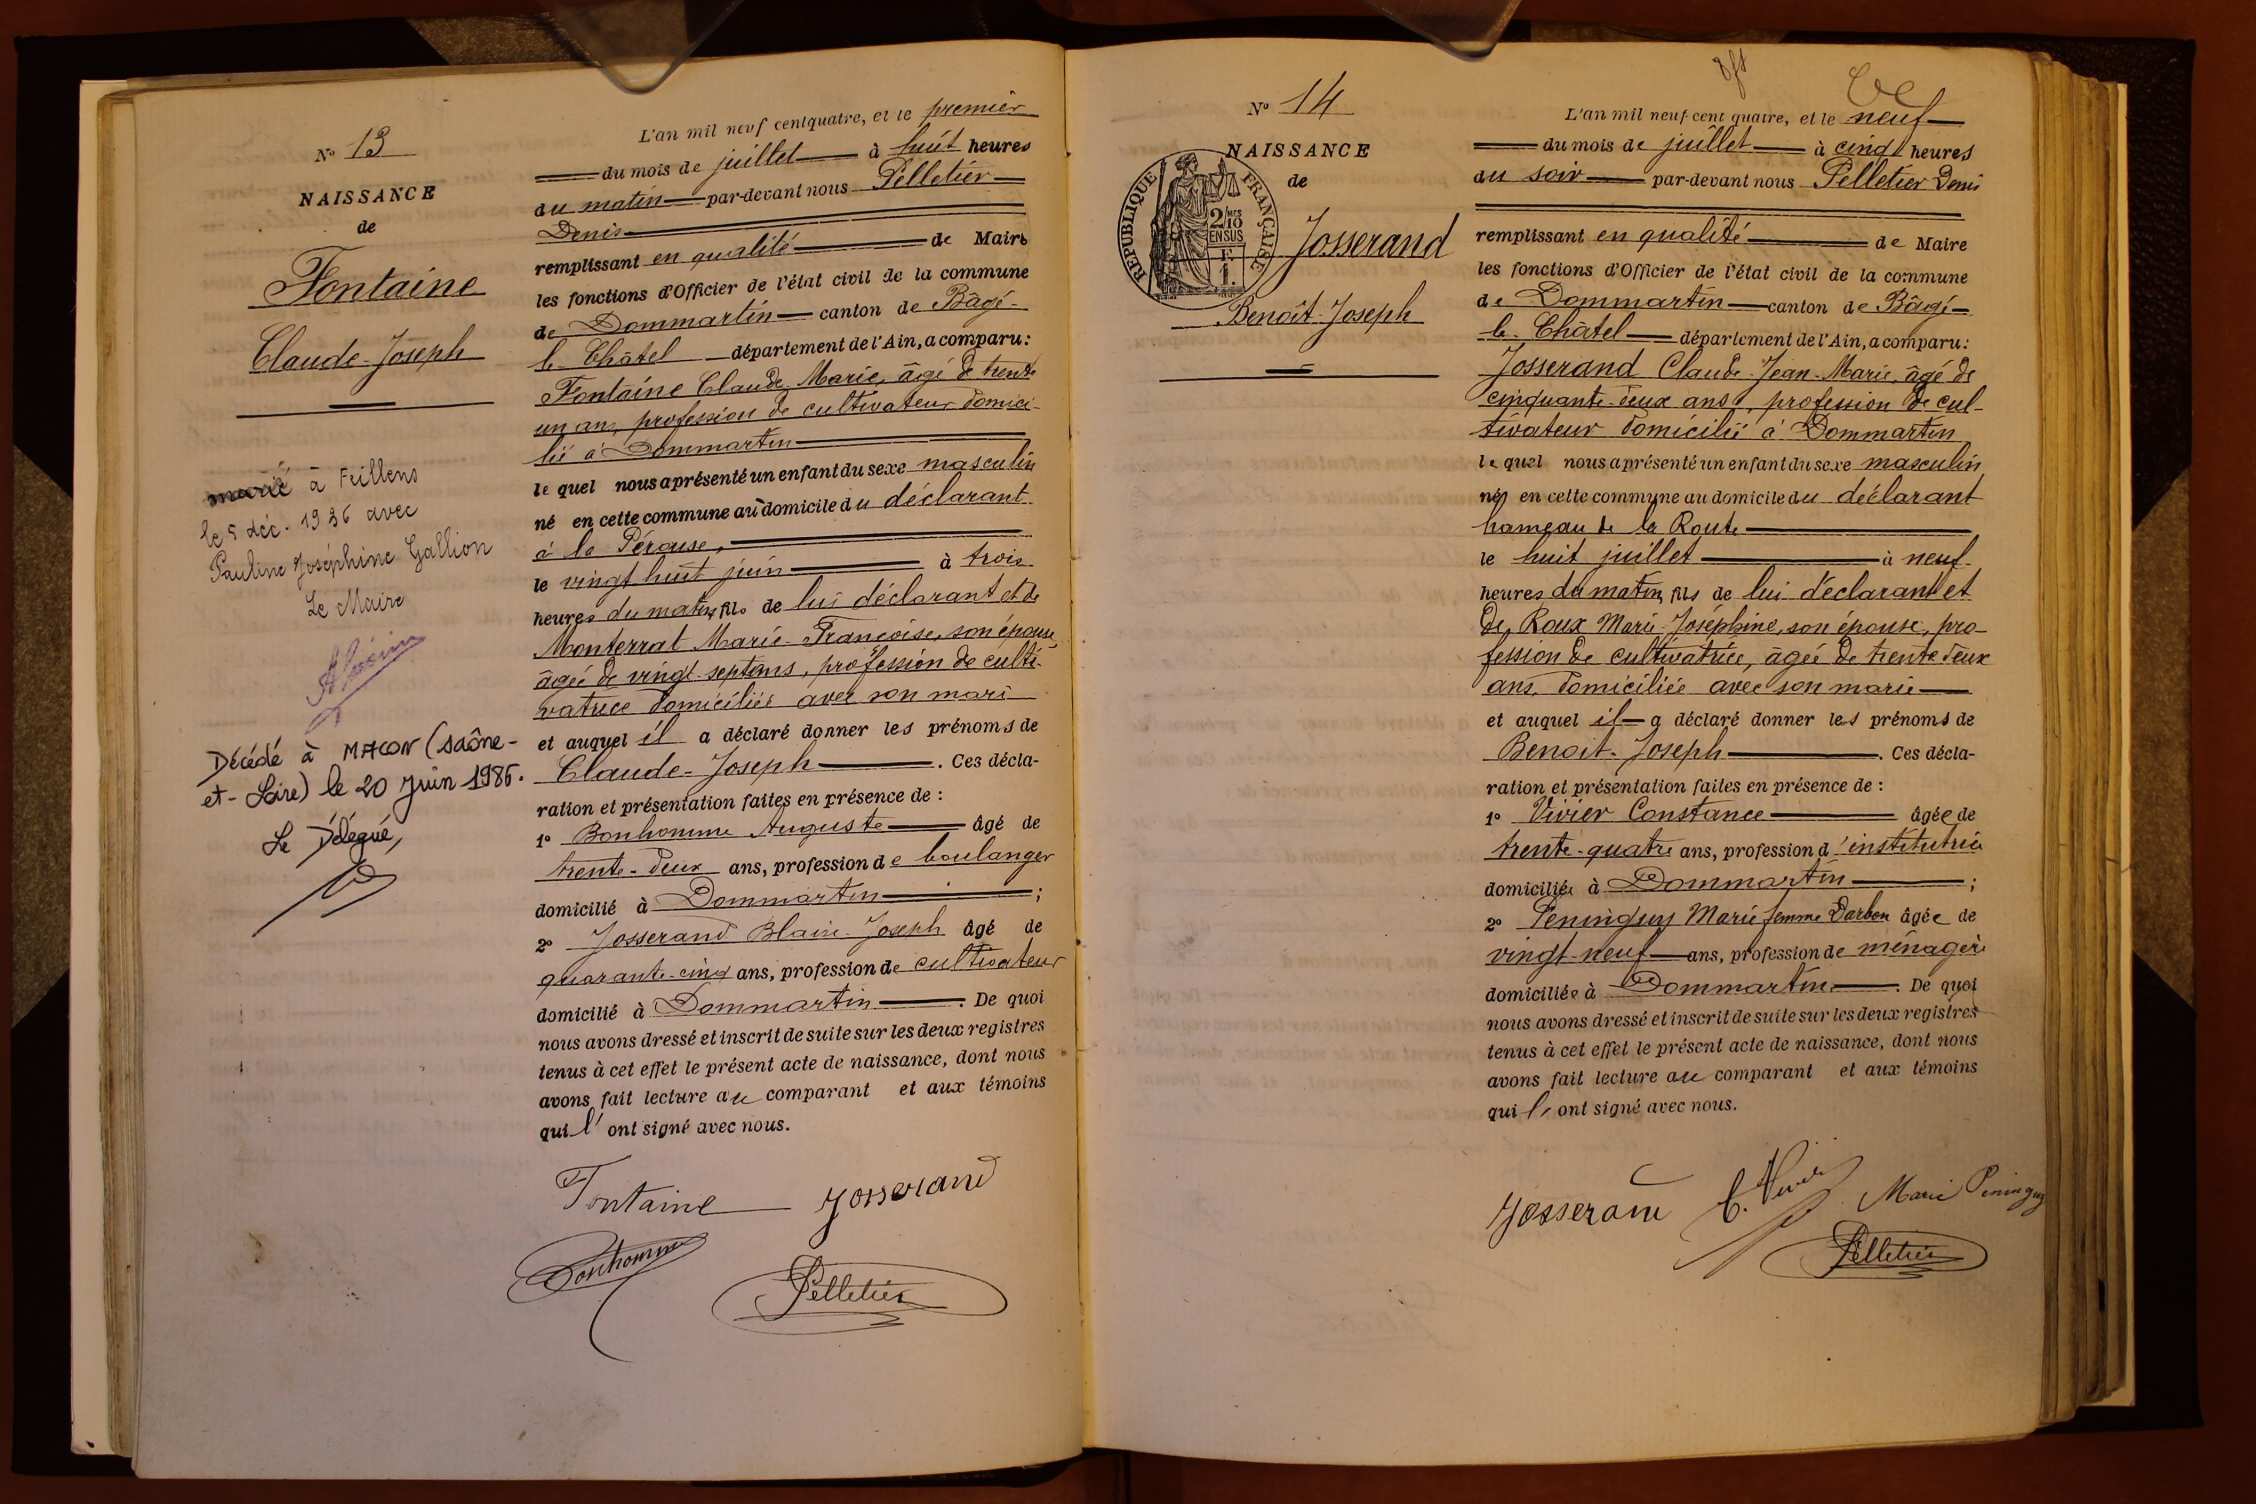 N° 13
NAISSANCE
de
Fontaine
Claude-Joseph
marié à Feillens
le 5 déc. 1936 avec
Pauline Joséphine Gallion
Le Maire
Décédé à MACON (Saône-
et-Loire) le 20 Juin 1986.
Le Délégué,
L'an mil neuf cent quatre, et le premier
du mois de juillet à huit heures
du matin par-devant nous Pelletier
Denis
remplissant en qualité de Maire
les fonctions d'Officier de l'état civil de la commune
de Dommartin canton de Bâgé-
le Châtel département de l'Ain, a comparu :
Fontaine Claude Marie, âgé de trente
un ans, profession de cultivateur domici-
lié à Dommartin
lequel nous a présenté un enfant du sexe masculin
né en cette commune au domicile du déclarant
à la Pérouse,
le vingt huit juin à trois
heures du matin, fils de lui déclarant et de
Monterrat Marie-Françoise, son épouse
âgée de vingt-sept ans, profession de culti-
vatrice domiciliée avec son mari
et auquel il a déclaré donner les prénoms de
Claude-Joseph. Ces décla-
ration et présentation faites en présence de :
1° Bonhomme Auguste âgé de
trente-deux ans, profession de boulanger
domicilié à Dommartin ;
2° Josserand Blaise-Joseph âgé de
quarante-cinq ans, profession de cultivateur
domicilié à Dommartin. De quoi
nous avons dressé et inscrit de suite sur les deux registres
tenus à cet effet le présent acte de naissance, dont nous
avons fait lecture au comparant et aux témoins
qui l'ont signé avec nous.
Fontaine Josserand
Bonhomme Pelletier
N° 14
NAISSANCE
de
RÉPUBLIQUE FRANÇAISE
2/10
EN SUS
Josserand
Benoît-Joseph
L'an mil neuf cent quatre, et le neuf
du mois de juillet à cinq heures
du soir par-devant nous Pelletier Denis
remplissant en qualité de Maire
les fonctions d'Officier de l'état civil de la commune
de Dommartin canton de Bâgé-
le-Châtel département de l'Ain, a comparu :
Josserand Claude-Jean-Marie, âgé de
cinquante-deux ans, profession de cul-
tivateur domicilié à Dommartin
lequel nous a présenté un enfant du sexe masculin
né en cette commune au domicile du déclarant
hameau de la Route
le huit juillet à neuf
heures du matin, fils de lui déclarant et
de Roux Marie-Joséphine, son épouse, pro-
fession de cultivatrice, âgée de trente deux
ans, domiciliée avec son marie
et auquel il a déclaré donner les prénoms de
Benoit-Joseph. Ces décla-
ration et présentation faites en présence de :
1° Vivier Constance âgée de
trente-quatre ans, profession d'institutrice
domiciliée à Dommartin ;
2° Peninguy Marie femme Darbon âgée de
vingt-neuf ans, profession de ménagère
domiciliée à Dommartin. De quoi
nous avons dressé et inscrit de suite sur les deux registres
tenus à cet effet le présent acte de naissance, dont nous
avons fait lecture au comparant et aux témoins
qui l'ont signé avec nous.
Josserand C. Vivier Marie Peninguy
Pelletier